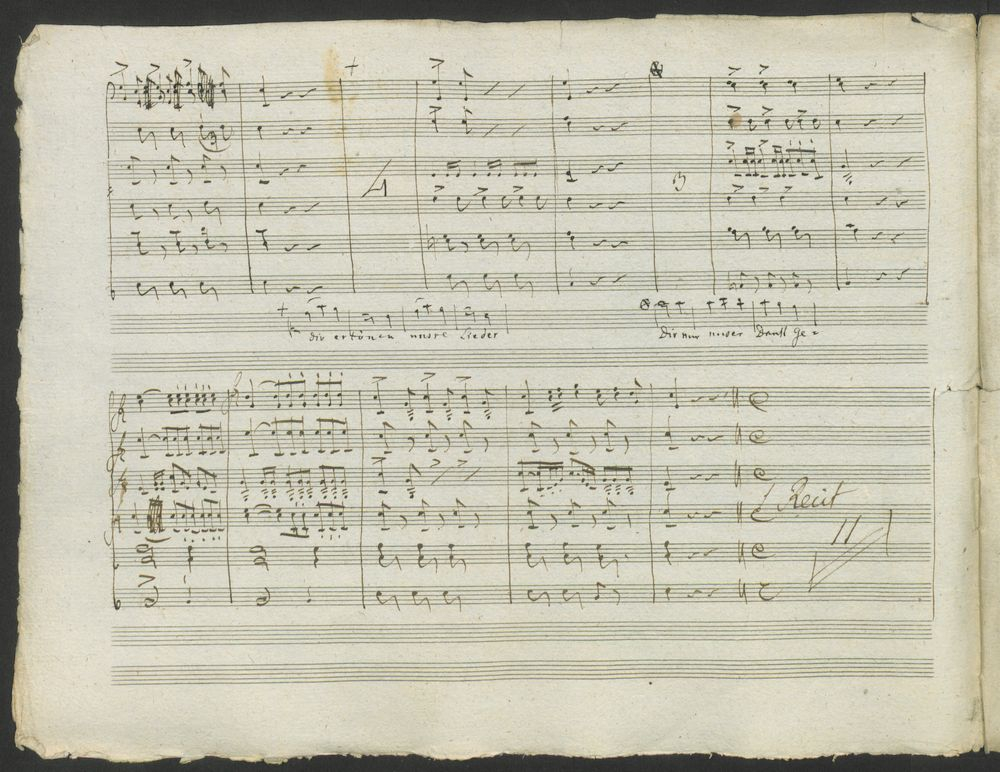 4
3
dir ertönen unsre Lieder
Dir nur unser Dank ge=
Recit
11